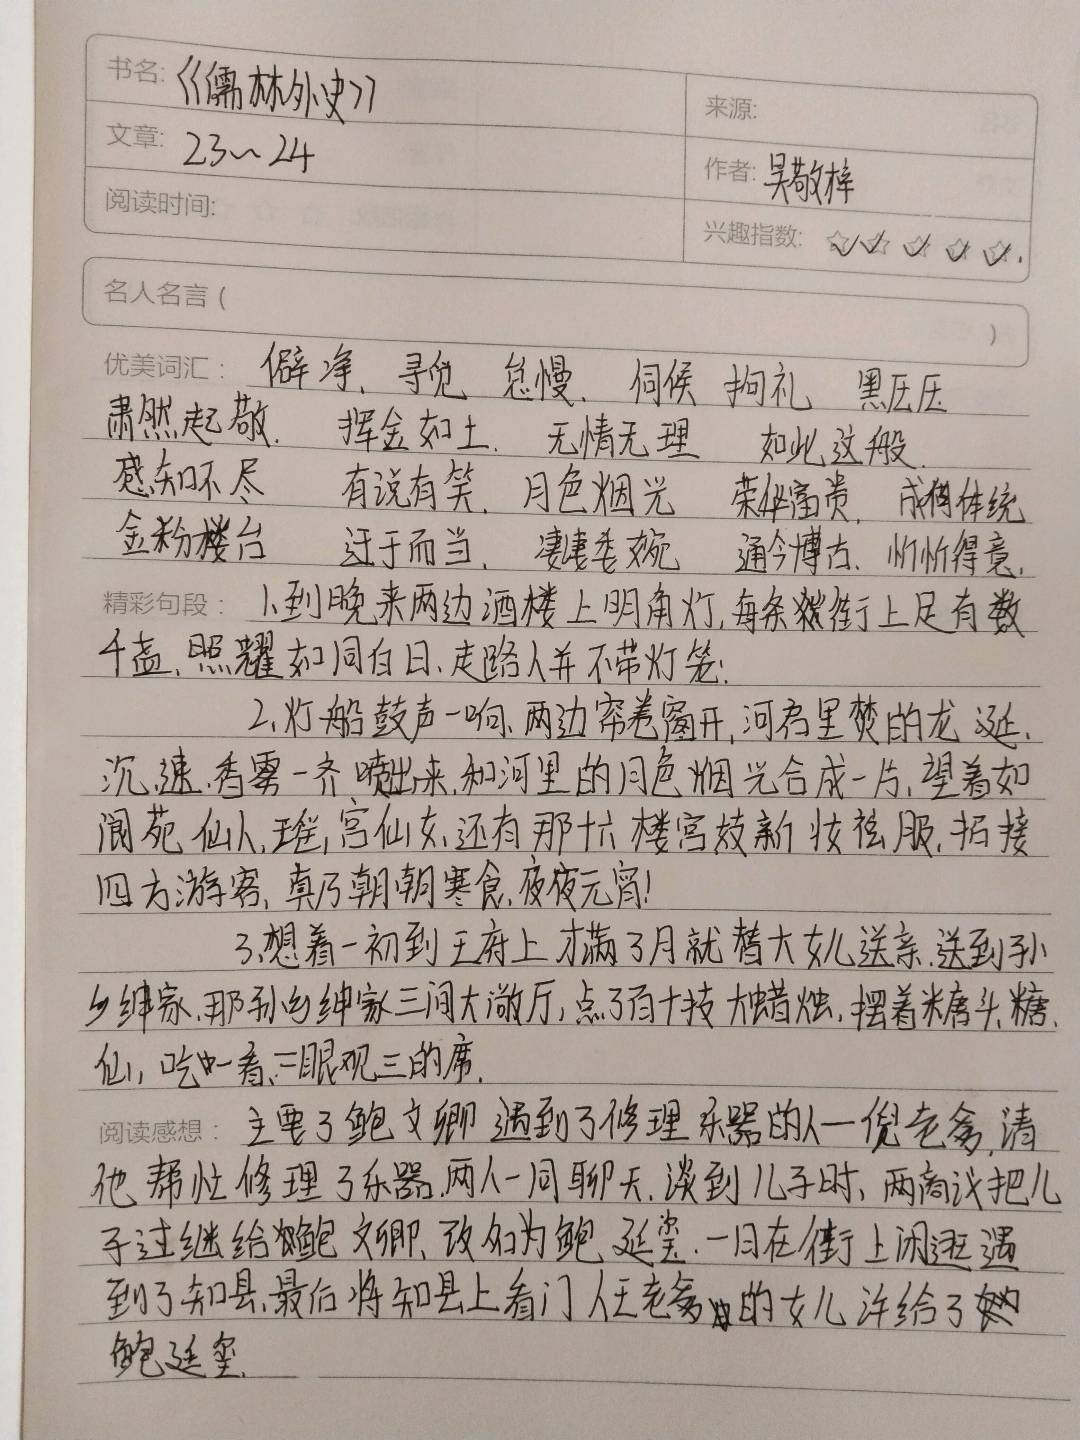 书名:《儒林外史》
来源:
文章: 23~24
作者: 吴敬梓
阅读时间:
兴趣指数: ☆☆☆☆☆.
名人名言 ( )
优美词汇: 僻净、寻觅 怠慢. 伺候 拘礼 黑压压
肃然起敬. 挥金如土. 无情无理 如此这般.
感知不尽 有说有笑. 月色烟光 荣华富贵. 成得体统
金粉楼台 迂于而当. 凄凄委婉 通今博古. 忻忻得意.
精彩句段: 1.到晚来两边酒楼上明角灯,每条街上足有数
千盏,照耀如同白日.走路人并不带灯笼;
2.灯船鼓声一响.两边帘卷窗开,河房里焚的龙涎.
沉.速.香雾一齐喷出来.和河里的月色烟光合成一片.望着如
阆苑仙人.瑶宫仙女.还有那十六楼官妓新妆袨服.招接
四方游客,真乃朝朝寒食.夜夜元宵!
3.想着一初到王府上才满了月就替大女儿送亲.送到孙
乡绅家.那孙乡绅家三间大敞厅,点了百十技大蜡烛,摆着糖斗.糖
仙,吃一看二眼观三的席.
阅读感想: 主要了鲍文卿遇到了修理乐器的人—倪老爹,请
他帮忙修理了乐器.两人一同聊天.谈到儿子时,两商议把儿
子过继给鲍文卿.改名为鲍廷玺.一日在街上闲逛遇
到了知县.最后将知县上看门人王老爹的女儿许给了
鲍廷玺.